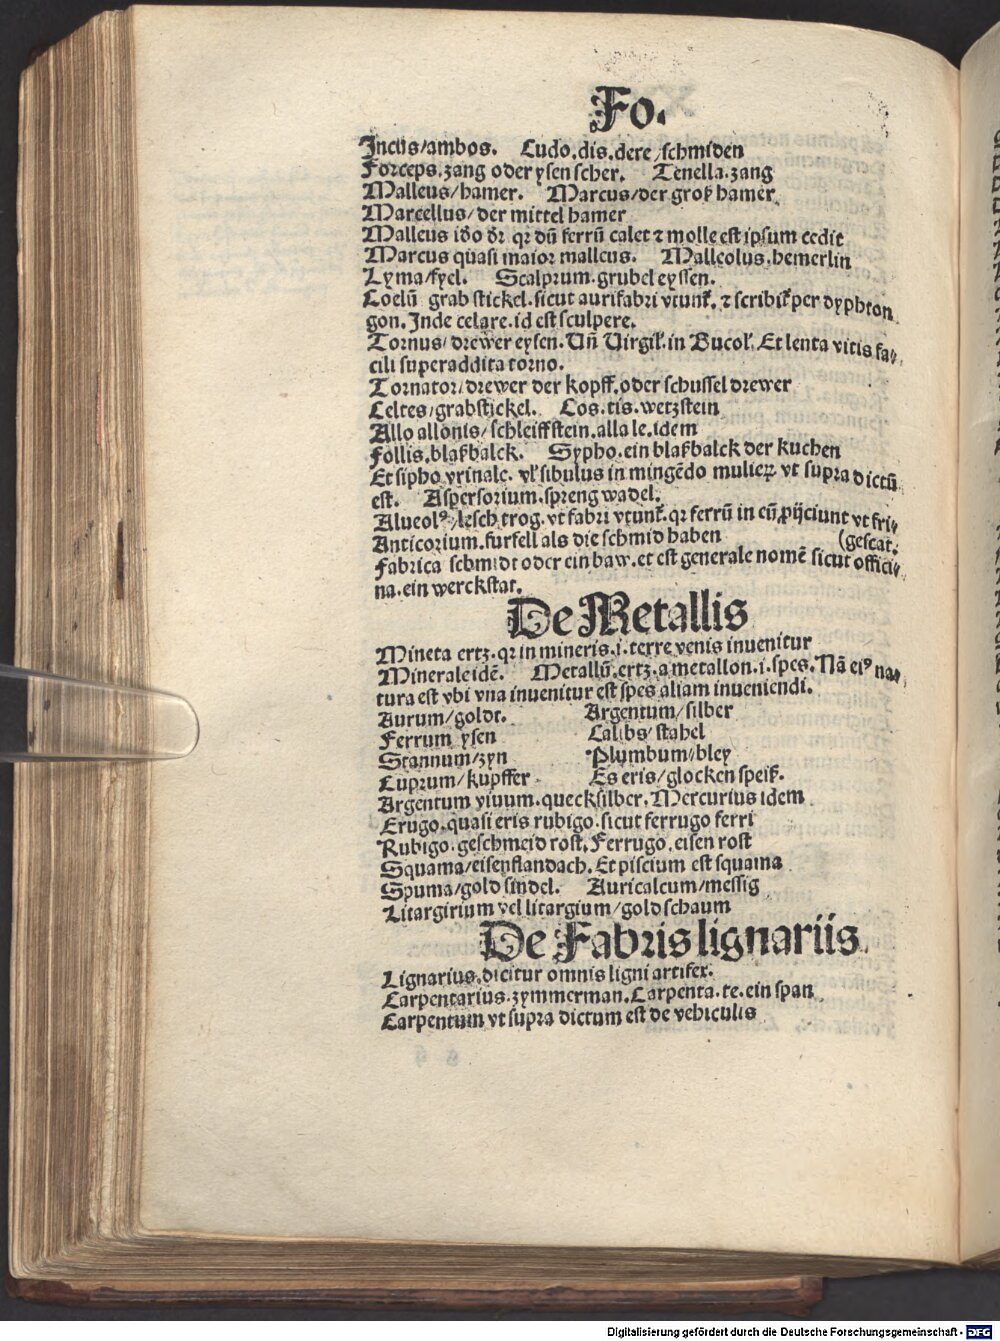 Fo.
Incus/ambos. Cudo.dis.dere/schmiden
Forceps.zang oder ysen scher. Tenella.zang
Malleus/hamer. Marcus/der groß hamer
Marcellus/der mittel hamer
Malleus iđo đr qꝛ dū ferrū calet ⁊ molle est ipsum cedit
Marcus quasi maior malleus. Malleolus.hemerlin
Lyma/fyel. Scalprum.grubel eyssen.
Coelū grab stickel.sicut aurifabri vtunt᷑. ⁊ scribit᷑ per dyphton
gon.Inde celare.id est sculpere.
Tornus/drewer eysen.Uñ Uirgil᷑.in Bucol᷑.Et lenta vitis fa⸗
cili superaddita torno.
Tornator/drewer der kopff.oder schussel drewer
Celtes/grabstickel. Cos.tis.wetzstein
Allo allonis/schleiffstein.alla le.idem
Follis.blaßbalck. Sypho.ein blaßbalck der kuchen
Et sipho vrinale. vl᷑ sibulus in mingēdo mulieꝝ vt supra dictū
est. Aspersorium.spreng wadel.
Alueolꝰ/lesch trog.vt fabri vtunt᷑.qꝛ ferrū in eū ꝓijciunt vt fri⸗
Anticorium.furfell als die schmid haben (gescat.
Fabrica schmidt oder ein baw.et est generale nomē sicut offici⸗
na.ein werckstat.
De Metallis
Mineta ertz.qꝛ in mineris.i.terre venis inuenitur
Minerale idē. Metallū.ertz.a metallon.i.spes.Nā eiꝰ na⸗
tura est vbi vna inuenitur est spes aliam inueniendi.
Aurum/goldt. Argentum/silber
Ferrum ysen Calibs/stahel
Stannum/zyn Plumbum/bley
Cuprum/kupffer Es eris/glocken speiß.
Argentum viuum.quecksilber.Mercurius idem
Erugo.quasi eris rubigo.sicut ferrugo ferri
Rubigo.geschmeid rost.Ferrugo.eisen rost
Squama/eisenflandach.Et piscium est squama
Spuma/gold sindel. Auricalcum/messig
Litargirium vel litargium/gold schaum
De Fabris lignariis
Lignarius.dicitur omnis ligni artifex.
Carpentarius.zymmerman.Carpenta.te.ein span
Carpentum vt supra dictum est de vehiculis
Digitalisierung gefördert durch die Deutsche Forschungsgemeinschaft - DFG